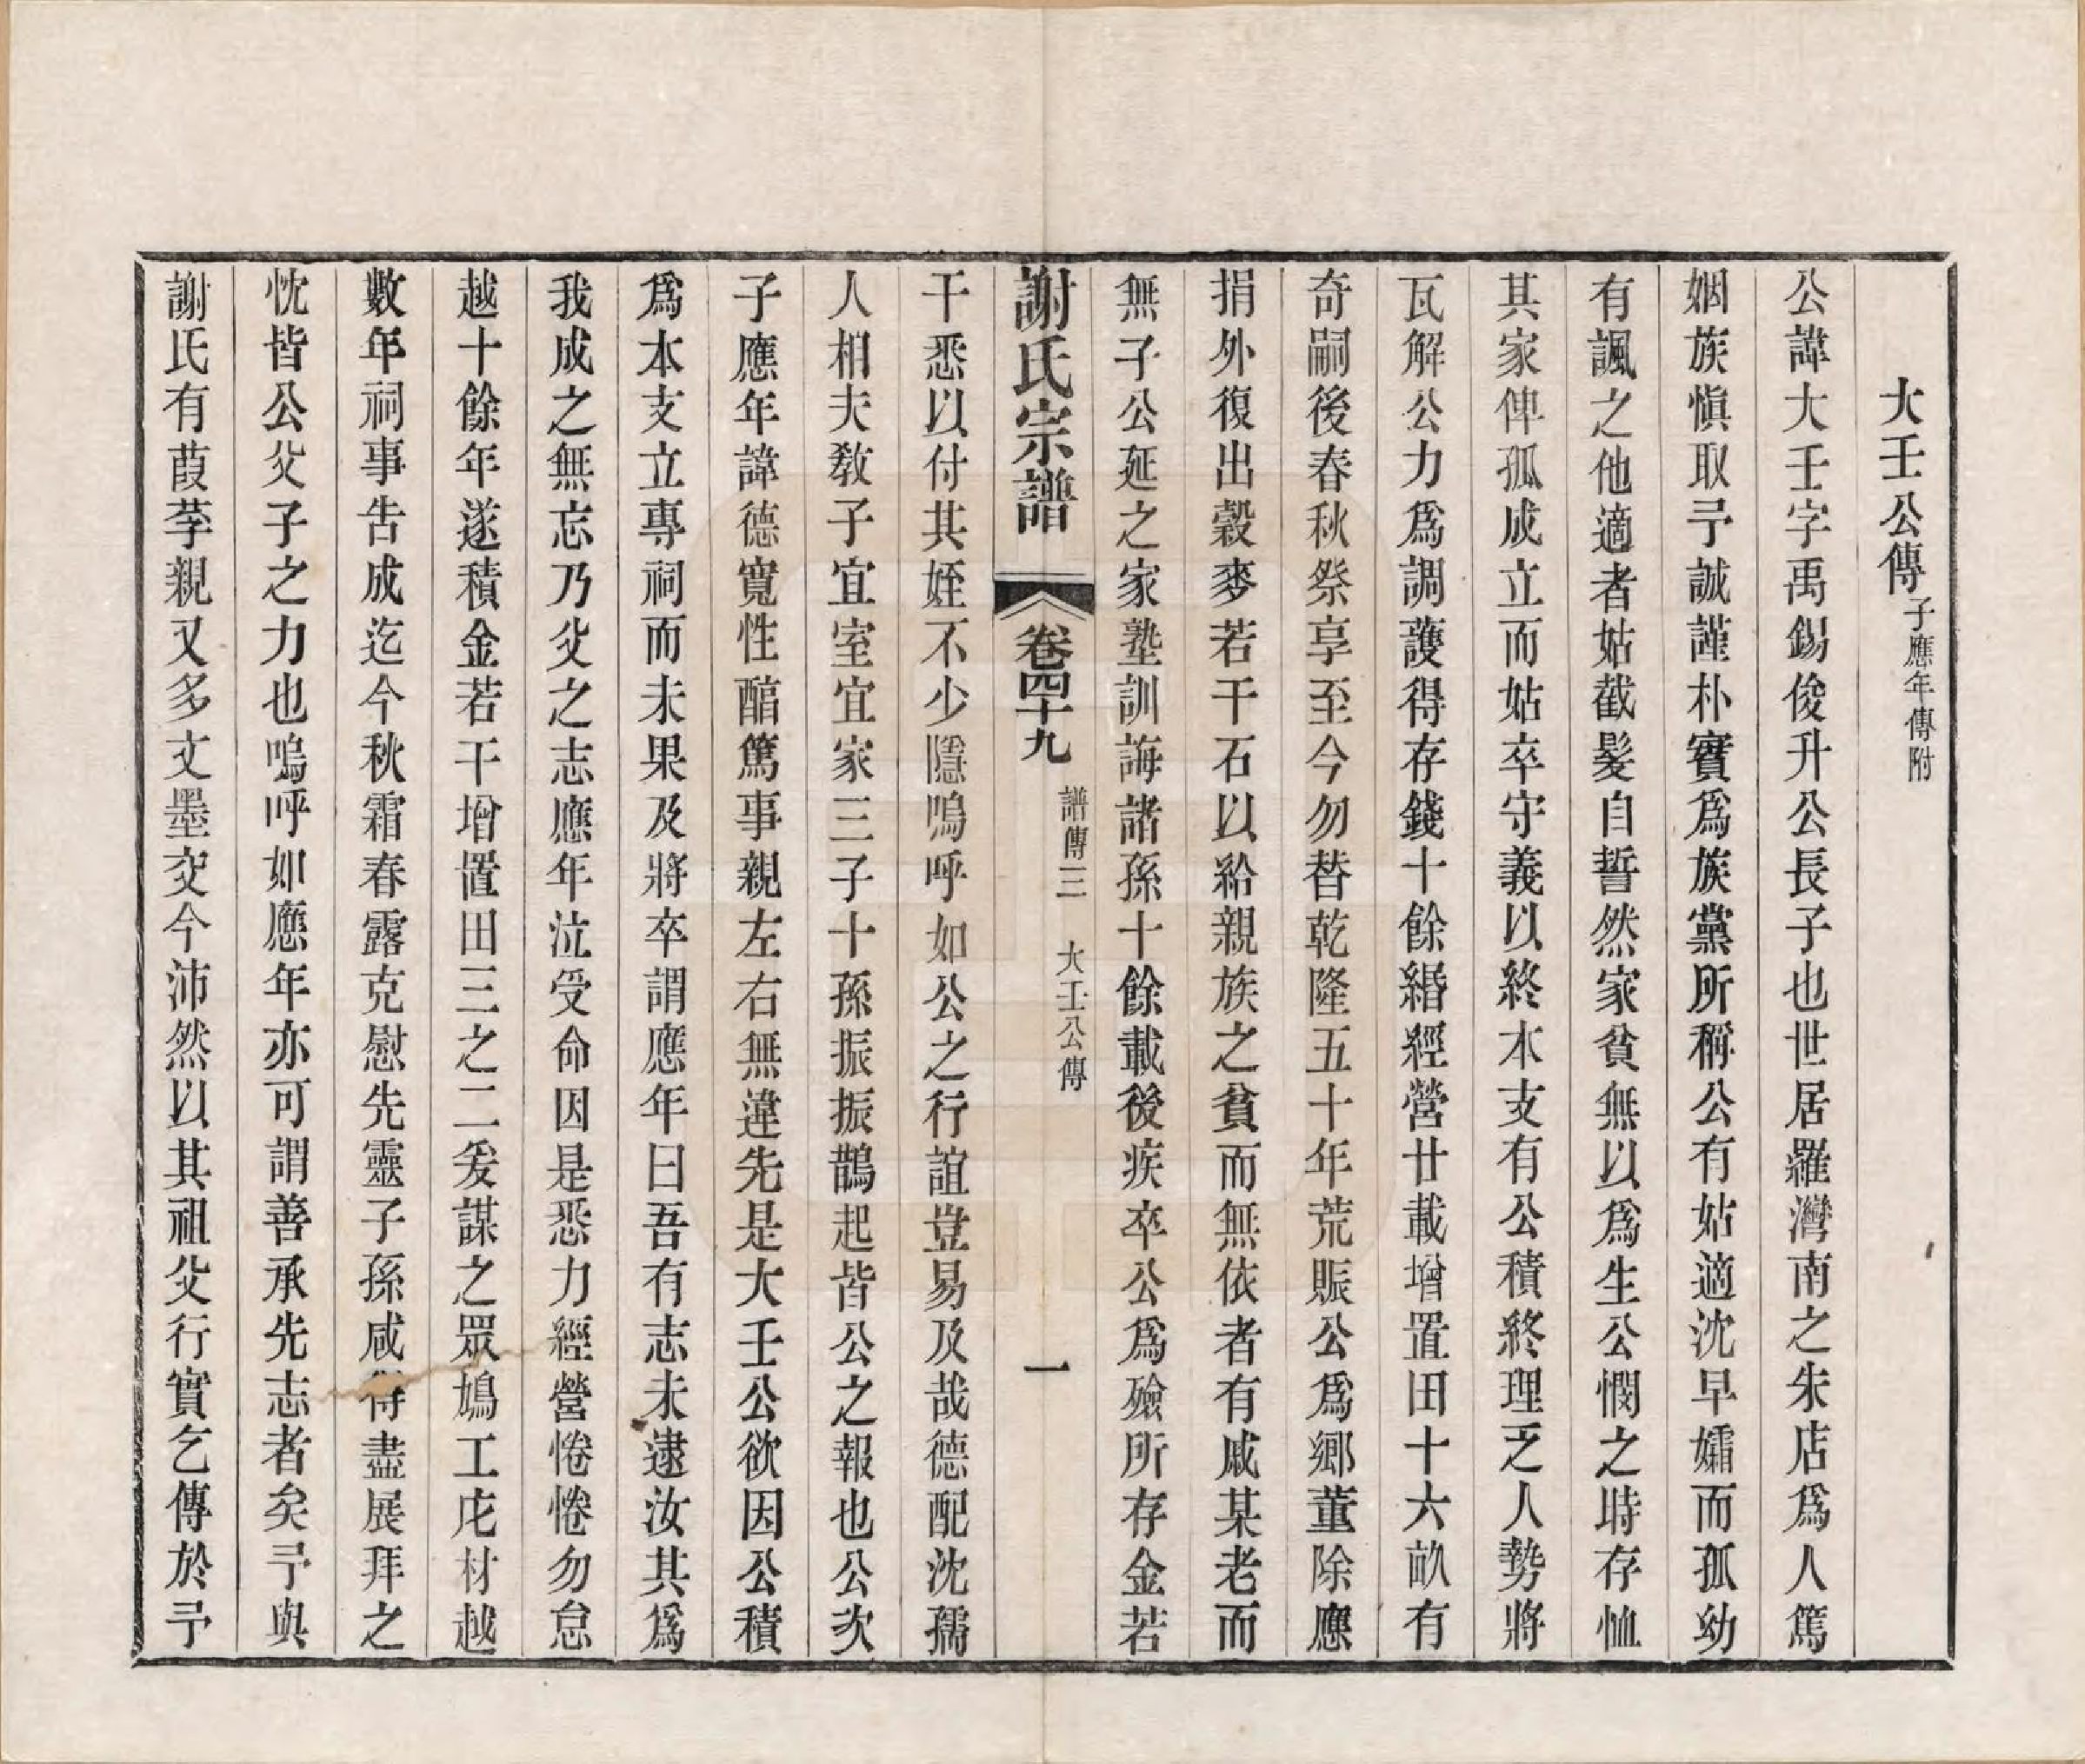 大壬公傳子應年傳附
公諱大壬字禹錫俊升公長子也世居羅灣南之朱店爲人篤
姻族慎取予誠謹朴實爲族黨所稱公有姑適沈早孀而孤幼
有諷之他適者姑截髮自誓然家貧無以爲生公憫之時存恤
其家俾孤成立而姑卒守義以終本支有公積終理乏人勢將
瓦解公力爲調護得存錢十餘緡經營廿載增置田十六畝有
奇嗣後春秋祭享至今勿替乾隆五十年荒賑公爲鄉董除應
捐外復出穀麥若干石以給親族之貧而無依者有戚某老而
無子公延之家塾訓誨諸孫十餘載後疾卒公爲殮所存金若
謝氏宗譜 卷四十九 譜傳三 大壬公傳 一
干悉以付其姪不少隱嗚呼如公之行誼豈易及哉德配沈孺
人相夫教子宜室宜家三子十孫振振鵲起皆公之報也公次
子應年諱德寬性醇篤事親左右無違先是大壬公欲因公積
爲本支立專祠而未果及將卒謂應年曰吾有志未逮汝其爲
我成之無忘乃父之志應年泣受命因是悉力經營惓惓勿怠
越十餘年遂積金若干增置田三之二爰謀之眾鳩工庀材越
數年祠事告成迄今秋霜春露克慰先靈子孫咸得盡展拜之
忱皆公父子之力也嗚呼如應年亦可謂善承先志者矣予與
謝氏有葭莩親又多文墨交今沛然以其祖父行實乞傳於予